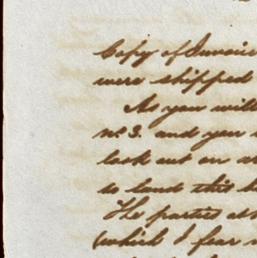 Copy of Invoice
were shipped
As you will
No 3. and you
look out on
to land this
The parties at
(which I fear